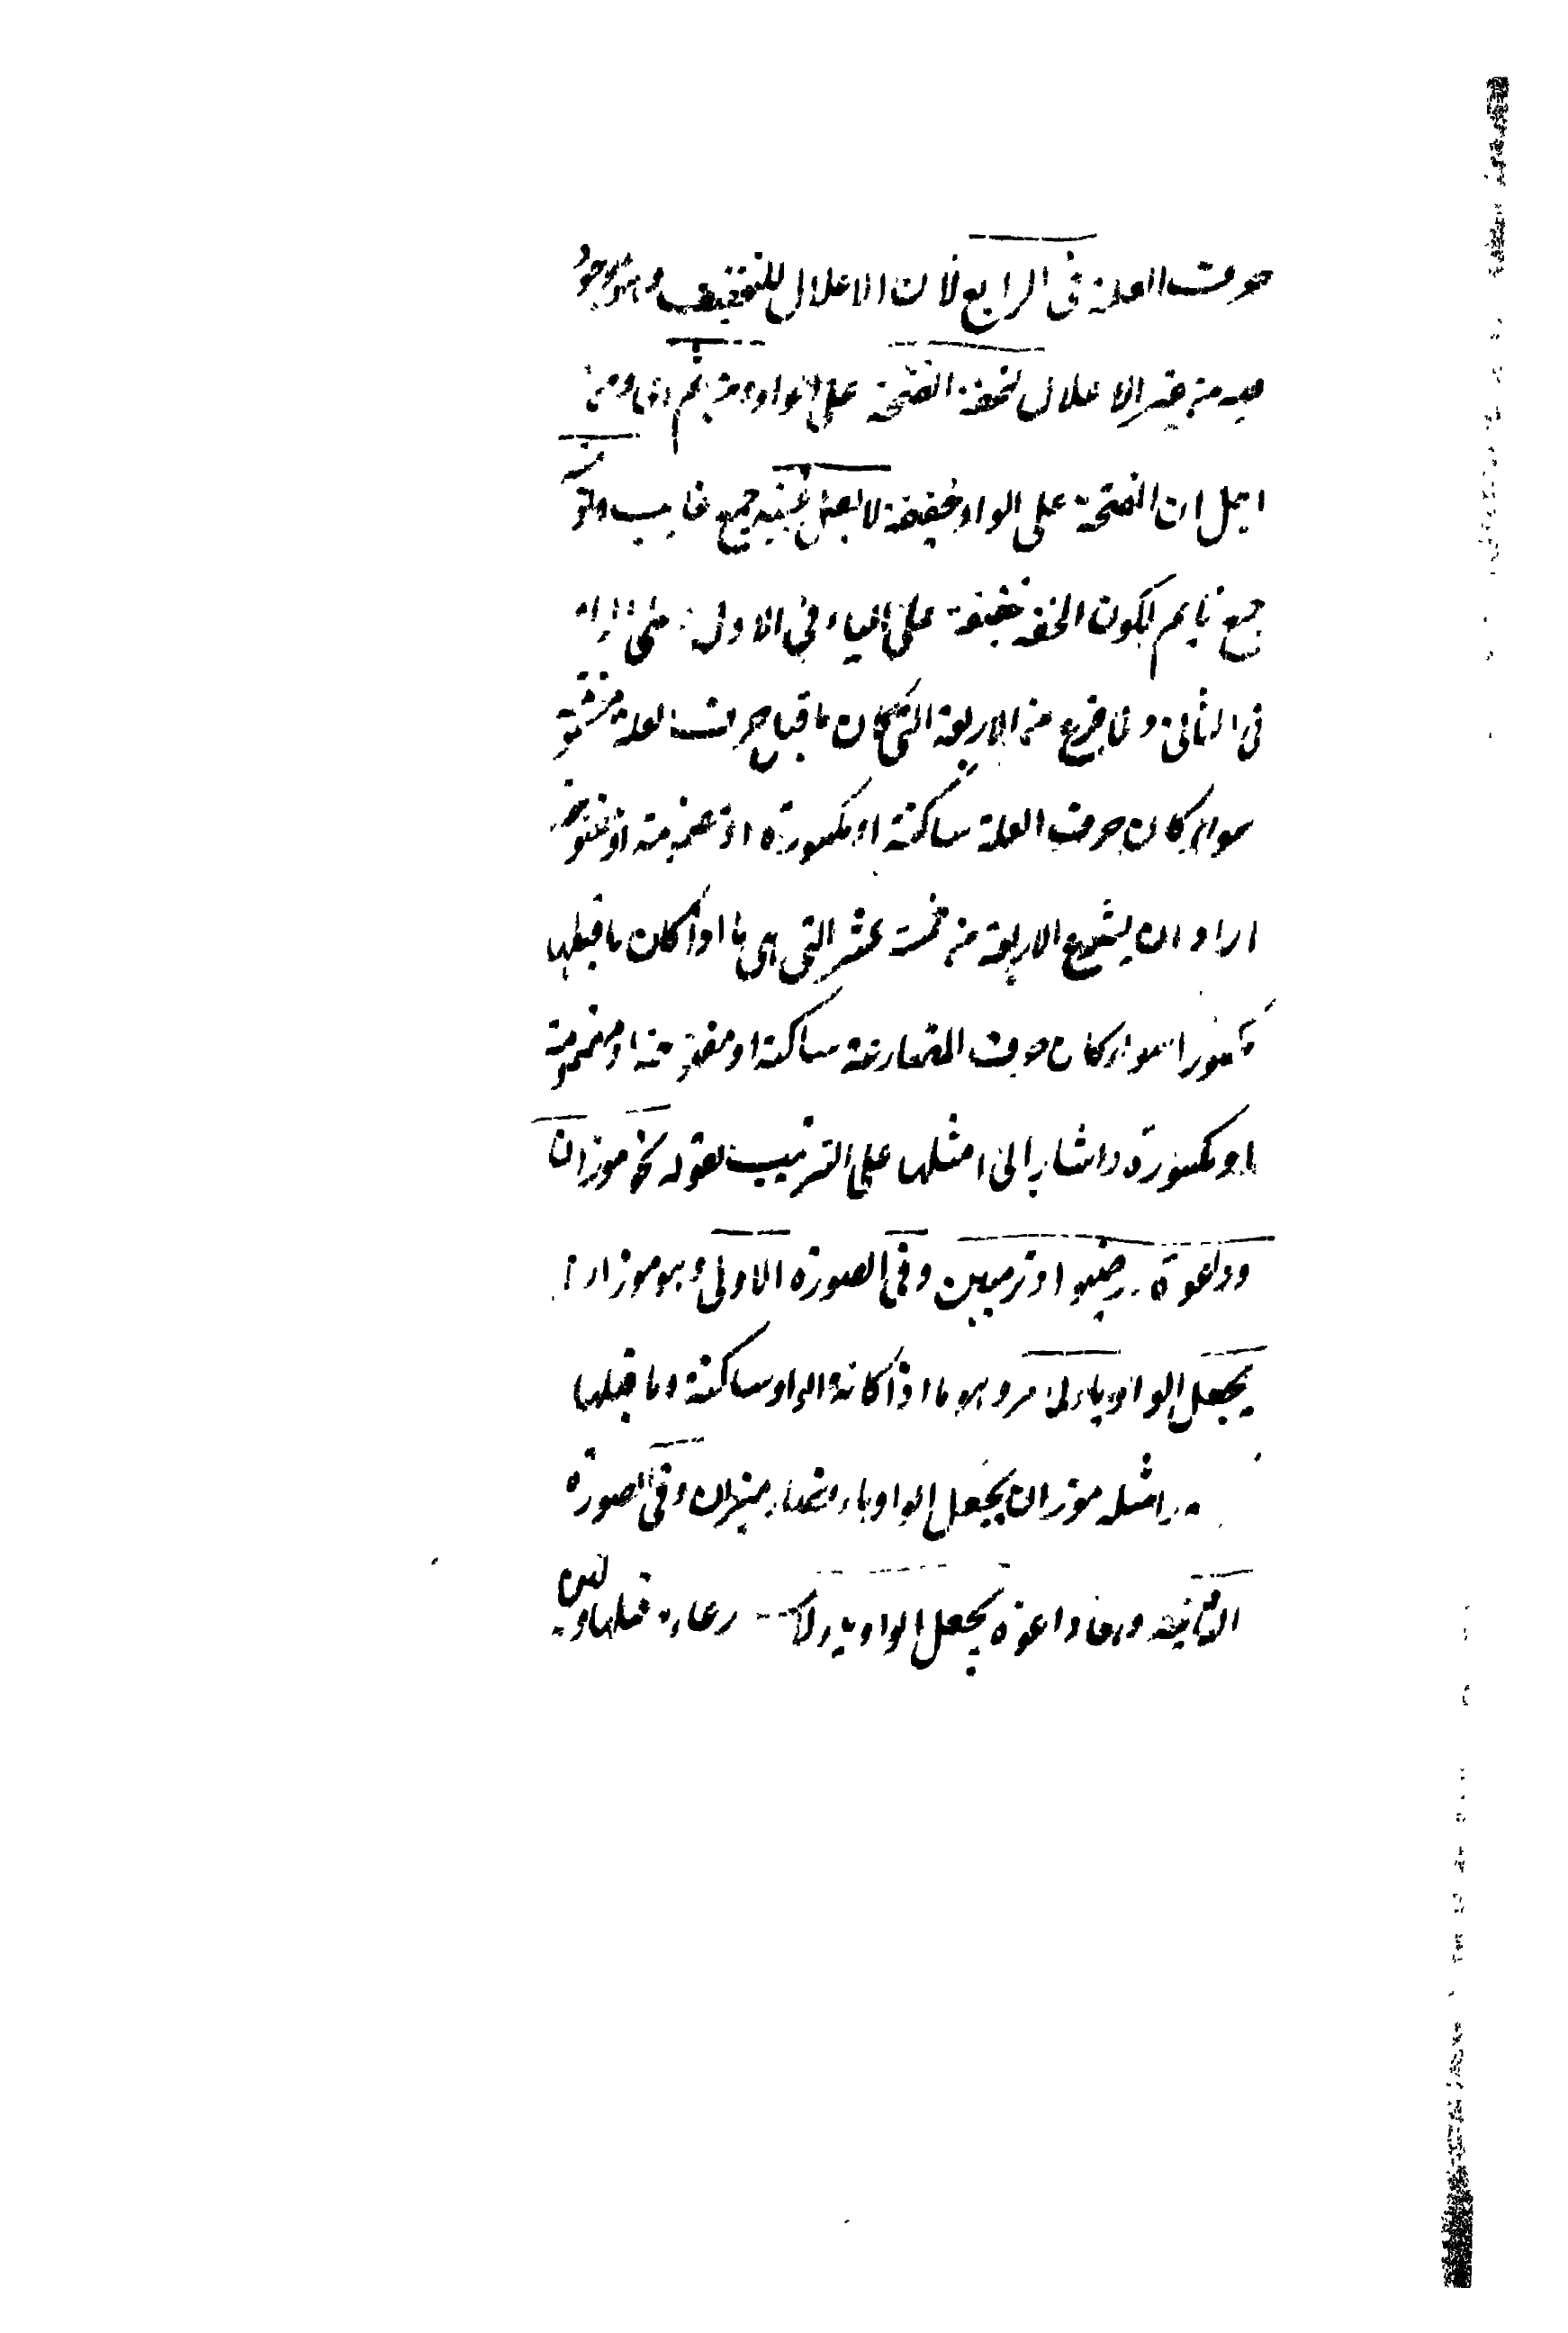 حرف العلة فى الرابع لان الاعلال للتخفيف وهو موجود
فيه من غير الاعلال لخفة الفتحة على الواو ومن ثم اى ومن
اجل ان الفتحة على الواو خفيفة لا يعل غيبة جمع غايب ونوم
جمع نايم لكون الفتحة خفيفة على الياء فى الاول على الواو
فى الثانى ولما فرغ من الاربعة التى كان ما قبل حرف العلة مضموما
سواء كان حرف العلة ساكنة او مكسورة او مضمومة او مفتوحة
اراد ان يشرع الاربعة من خمسة عشر التى هى ما اذا كان ما قبلها
مكسورا سواء كان حرف المضارعة ساكنة او مفتوحة او مضمومة
او مكسورة واشار الى امثلها على الترتيب بقوله نحو موزان
وداعوة ورضيوا وترميين وفى الصورة الاولى وهو موزان
يجعل الواو ياء لما مر وهو ما اذا كانت الواو ساكنة وما قبلها
امثله موزان يجعل الواو ياء فصار ميزان وفى الصورة
الثانية وهى داعوة يجعل الواو ياء قبلها ولين